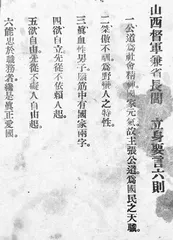 山西督軍兼省長閻 立身要言六則
一公道爲社會精神國家元氣故主張公道爲國民之天職
二桀傲不馴爲野蠻人之特性
三眞血性男子腦筋中有國家兩字
四欲自立先從不依賴人起
五欲自由先從不礙人自由起
六能忠於職務者纔是眞正愛國